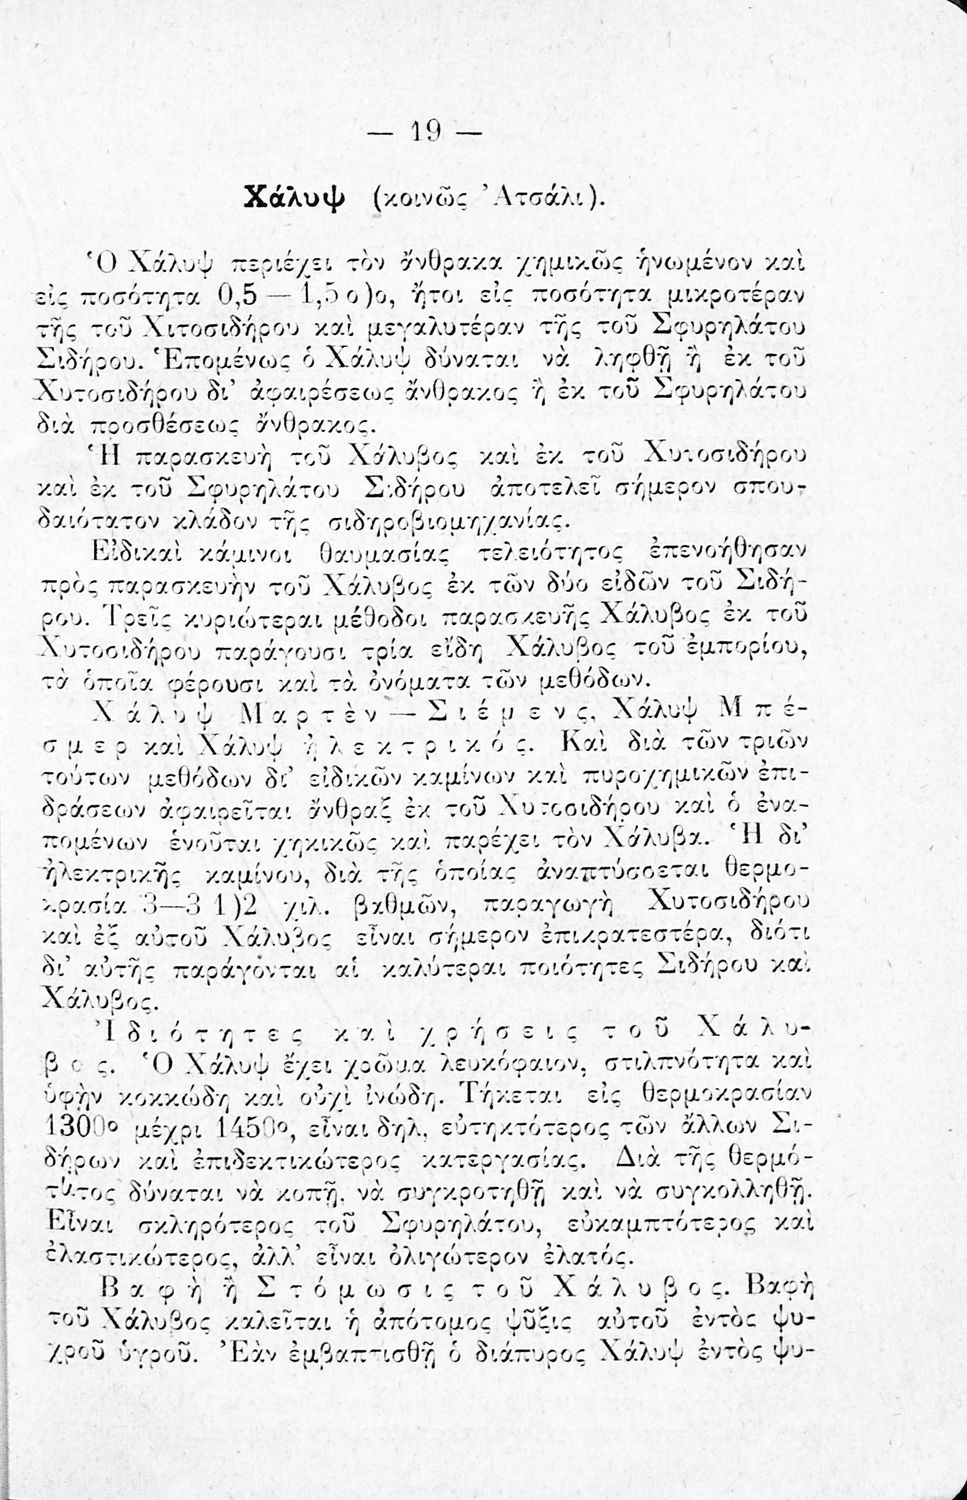 — 19 —
Χάλυψ (κοινῶς Ἀτσάλι).
Ὁ Χάλυψ περιέχει τὸν ἄνθρακα χημικῶς ἡνωμένον καὶ
εἰς ποσότητα 0,5 — 1,5 ο)ο, ἤτοι εἰς ποσότητα μικροτέραν
τῆς τοῦ Χιτοσιδήρου καὶ μεγαλυτέραν τῆς τοῦ Σφυρηλάτου
Σιδήρου. Ἑπομένως ὁ Χάλυψ δύναται νὰ ληφθῇ ἢ ἐκ τοῦ
Χυτοσιδήρου δι’ ἀφαιρέσεως ἄνθρακος ἢ ἐκ τοῦ Σφυρηλάτου
διὰ προσθέσεως ἄνθρακος.
Ἡ παρασκευὴ τοῦ Χάλυβος καὶ ἐκ τοῦ Χυτοσιδήρου
καὶ ἐκ τοῦ Σφυρηλάτου Σιδήρου ἀποτελεῖ σήμερον σπου-
δαιότατον κλάδον τῆς σιδηροβιομηχανίας.
Εἰδικαὶ κάμινοι θαυμασίας τελειότητος ἐπενοήθησαν
πρὸς παρασκευὴν τοῦ Χάλυβος ἐκ τῶν δύο εἰδῶν τοῦ Σιδή-
ρου. Τρεῖς κυριώτεραι μέθοδοι παρασκευῆς Χάλυβος ἐκ τοῦ
Χυτοσιδήρου παράγουσι τρία εἴδη Χάλυβος τοῦ ἐμπορίου,
τὰ ὁποῖα φέρουσι καὶ τὰ ὀνόματα τῶν μεθόδων.
Χάλυψ Μαρτὲν — Σιέμενς, Χάλυψ Μπέ-
σμερ καὶ Χάλυψ ἠλεκτρικός. Καὶ διὰ τῶν τριῶν
τούτων μεθόδων δι’ εἰδικῶν καμίνων καὶ πυροχημικῶν ἐπι-
δράσεων ἀφαιρεῖται ἄνθραξ ἐκ τοῦ Χυτοσιδήρου καὶ ὁ ἐνα-
πομένων ἑνοῦται χηκικῶς καὶ παρέχει τὸν Χάλυβα. Ἡ δι’
ἠλεκτρικῆς καμίνου, διὰ τῆς ὁποίας ἀναπτύσσεται θερμο-
κρασία 3—3 1)2 χιλ. βαθμῶν, παραγωγὴ Χυτοσιδήρου
καὶ ἐξ αὐτοῦ Χάλυβος εἶναι σήμερον ἐπικρατεστέρα, διότι
δι’ αὐτῆς παράγονται αἱ καλύτεραι ποιότητες Σιδήρου καὶ
Χάλυβος.
Ἰδιότητες καὶ χρήσεις τοῦ Χάλυ-
βος. Ὁ Χάλυψ ἔχει χρῶμα λευκόφαιον, στιλπνότητα καὶ
ὑφὴν κοκκώδη καὶ οὐχὶ ἰνώδη. Τήκεται εἰς θερμοκρασίαν
1300ο μέχρι 1450ο, εἶναι δηλ. εὐτηκτότερος τῶν ἄλλων Σι-
δήρων καὶ ἐπιδεκτικώτερος κατεργασίας. Διὰ τῆς θερμό-
τητος δύναται νὰ κοπῇ, νὰ συγκροτηθῇ καὶ νὰ συγκολληθῇ.
Εἶναι σκληρότερος τοῦ Σφυρηλάτου, εὐκαμπτότερος καὶ
ἐλαστικώτερος, ἀλλ’ εἶναι ὀλιγώτερον ἐλατός.
Βαφὴ ἢ Στόμωσις τοῦ Χάλυβος. Βαφὴ
τοῦ Χάλυβος καλεῖται ἡ ἀπότομος ψῦξις αὐτοῦ ἐντὸς ψυ-
χροῦ ὑγροῦ. Ἐὰν ἐμβαπτισθῇ ὁ διάπυρος Χάλυψ ἐντὸς ψυ-